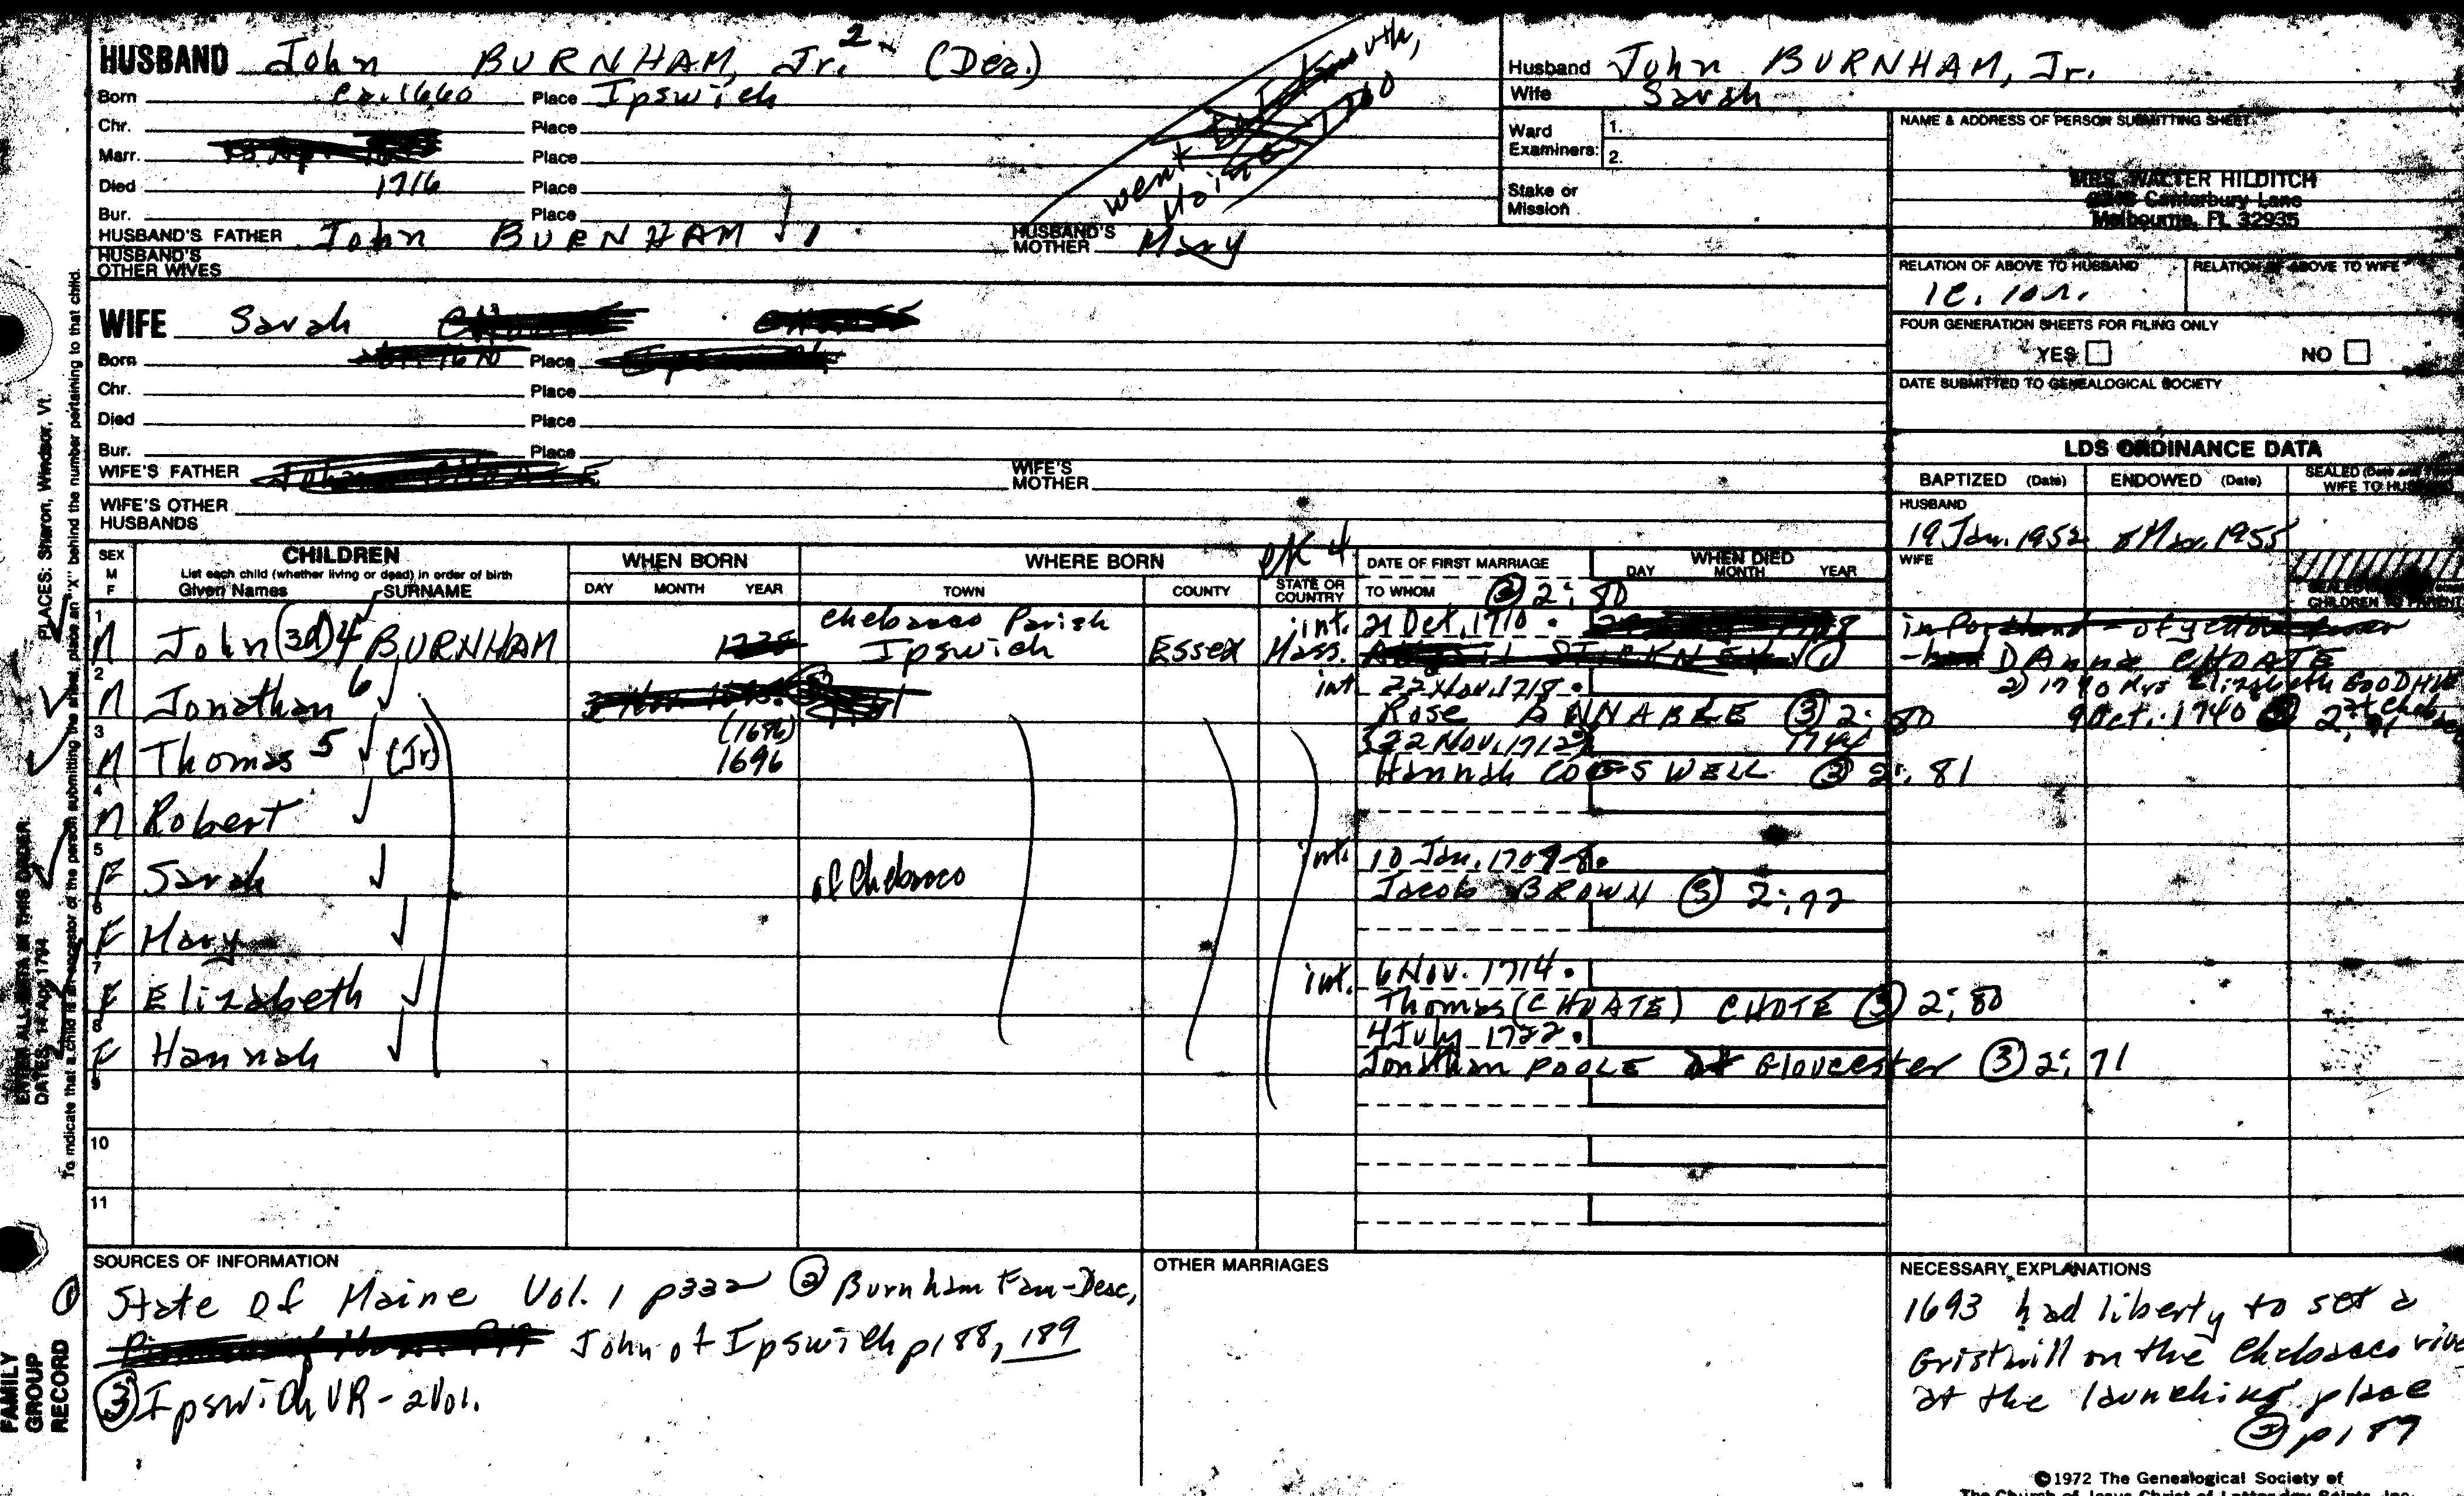 HUSBAND John BURNHAM, Jr. 2 (Dea.)
Born ca. 1660 Place Ipswich
Chr. Place
Marr. Place
Died 1716 Place
Bur. Place
went to
HUSBAND'S FATHER John BURNHAM 1
HUSBAND'S MOTHER Mary
HUSBAND'S OTHER WIVES
Husband John BURNHAM, Jr.
Wife Sarah
Ward Examiners: 1.
2.
Stake or Mission
NAME & ADDRESS OF PERSON SUBMITTING SHEET
MRS. WALTER HILDITCH
Canterbury Lane
Melbourne, FL 32935
RELATION OF ABOVE TO HUSBAND
RELATION OF ABOVE TO WIFE
FOUR GENERATION SHEETS FOR FILING ONLY
YES NO
DATE SUBMITTED TO GENEALOGICAL SOCIETY
WIFE Sarah
Born Place
Chr. Place
Died Place
Bur. Place
WIFE'S FATHER
WIFE'S MOTHER
WIFE'S OTHER HUSBANDS
LDS ORDINANCE DATA
BAPTIZED (Date) ENDOWED (Date) SEALED (Date and
WIFE TO
HUSBAND
19 Jan. 1952 8 Mar. 1955
WIFE
CHILDREN TO PARENT
SEX M F
CHILDREN
List each child (whether living or dead) in order of birth
Given Names SURNAME
WHEN BORN
DAY MONTH YEAR
WHERE BORN
TOWN COUNTY STATE OR COUNTRY
DATE OF FIRST MARRIAGE
TO WHOM
WHEN DIED
DAY MONTH YEAR
③ 2:80
1 M John (3d) 4 BURNHAM Chebacco Parish Ipswich Essex Mass. int. 21 Oct. 1710
Anna CHOATE
2) 1740 Mrs Elizabeth
9 Oct. 1740
2 M Jonathan 6 int 22 Nov. 1718
Rose ANNABLE ③ 2:80
3 M Thomas 5 (Jr) (1696) 1696 (22 Nov. 1712)
Hannah COGSWELL ③ 2:81
4 M Robert
5 F Sarah of Chebacco int. 10 Jan. 1707-8
Jacob BROWN ③ 2:72
6 F Mary
7 F Elizabeth int. 6 Nov. 1714
Thomas (CHOATE) CHOTE ③ 2:80
8 F Hannah 4 July 1722
Jonathan POOLE of Gloucester ③ 2:71
9
10
11
SOURCES OF INFORMATION
① State of Maine Vol. 1 p332 ② Burnham Fam-Desc,
John of Ipswich p188, 189
③ Ipswich VR - 2 Vol.
OTHER MARRIAGES
NECESSARY EXPLANATIONS
1693 had liberty to set a
Gristmill on the Chebacco
at the launching place
p189
©1972 The Genealogical Society of
The Church of Jesus Christ of Latter-day Saints, Inc.
PLACES: Sharon, Windsor, Vt.
To indicate that a child is an ancestor of the person submitting the sheet, place an "X" behind the number pertaining to that child.
ENTER ALL DATA IN THIS ORDER:
DATES: 14 Apr 1794
FAMILY
GROUP
RECORD